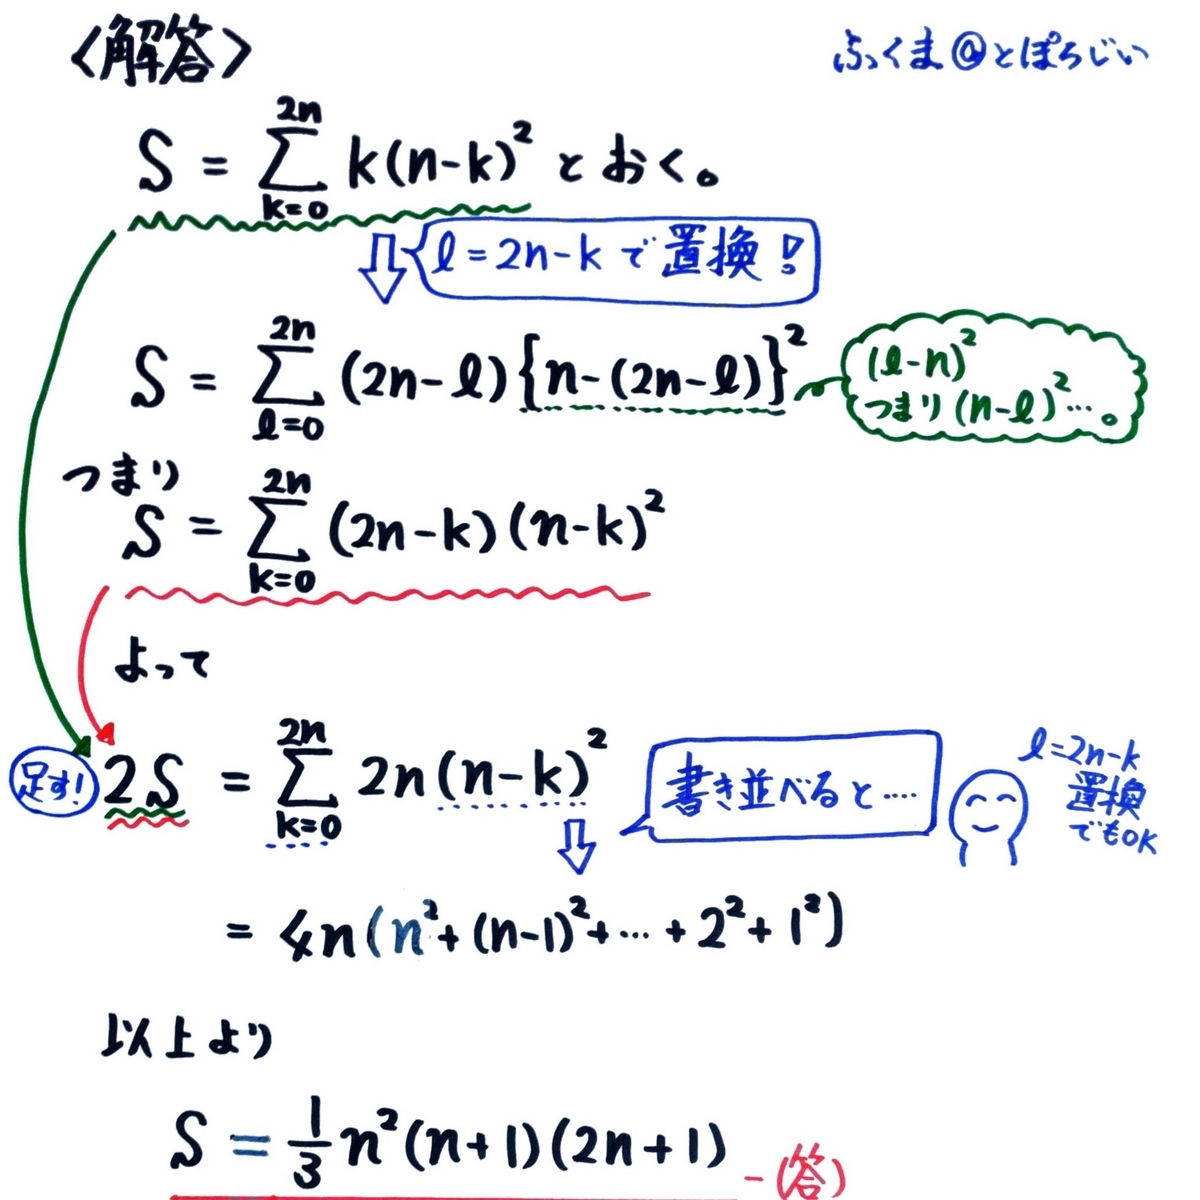 〈解答〉
ふっくま@とぽろじい
S = ∑_{k=0}^{2n} k(n-k)² とおく。
ℓ=2n-k で置換!
S = ∑_{ℓ=0}^{2n} (2n-ℓ){n-(2n-ℓ)}²
(ℓ-n)²
つまり(n-ℓ)²…。
つまり
S = ∑_{k=0}^{2n} (2n-k)(n-k)²
よって
足す!
2S = ∑_{k=0}^{2n} 2n(n-k)²
書き並べると……
ℓ=2n-k
置換
でもOK
= 4n(n²+(n-1)²+…+2²+1²)
以上より
S = 1/3 n²(n+1)(2n+1)
-(答)